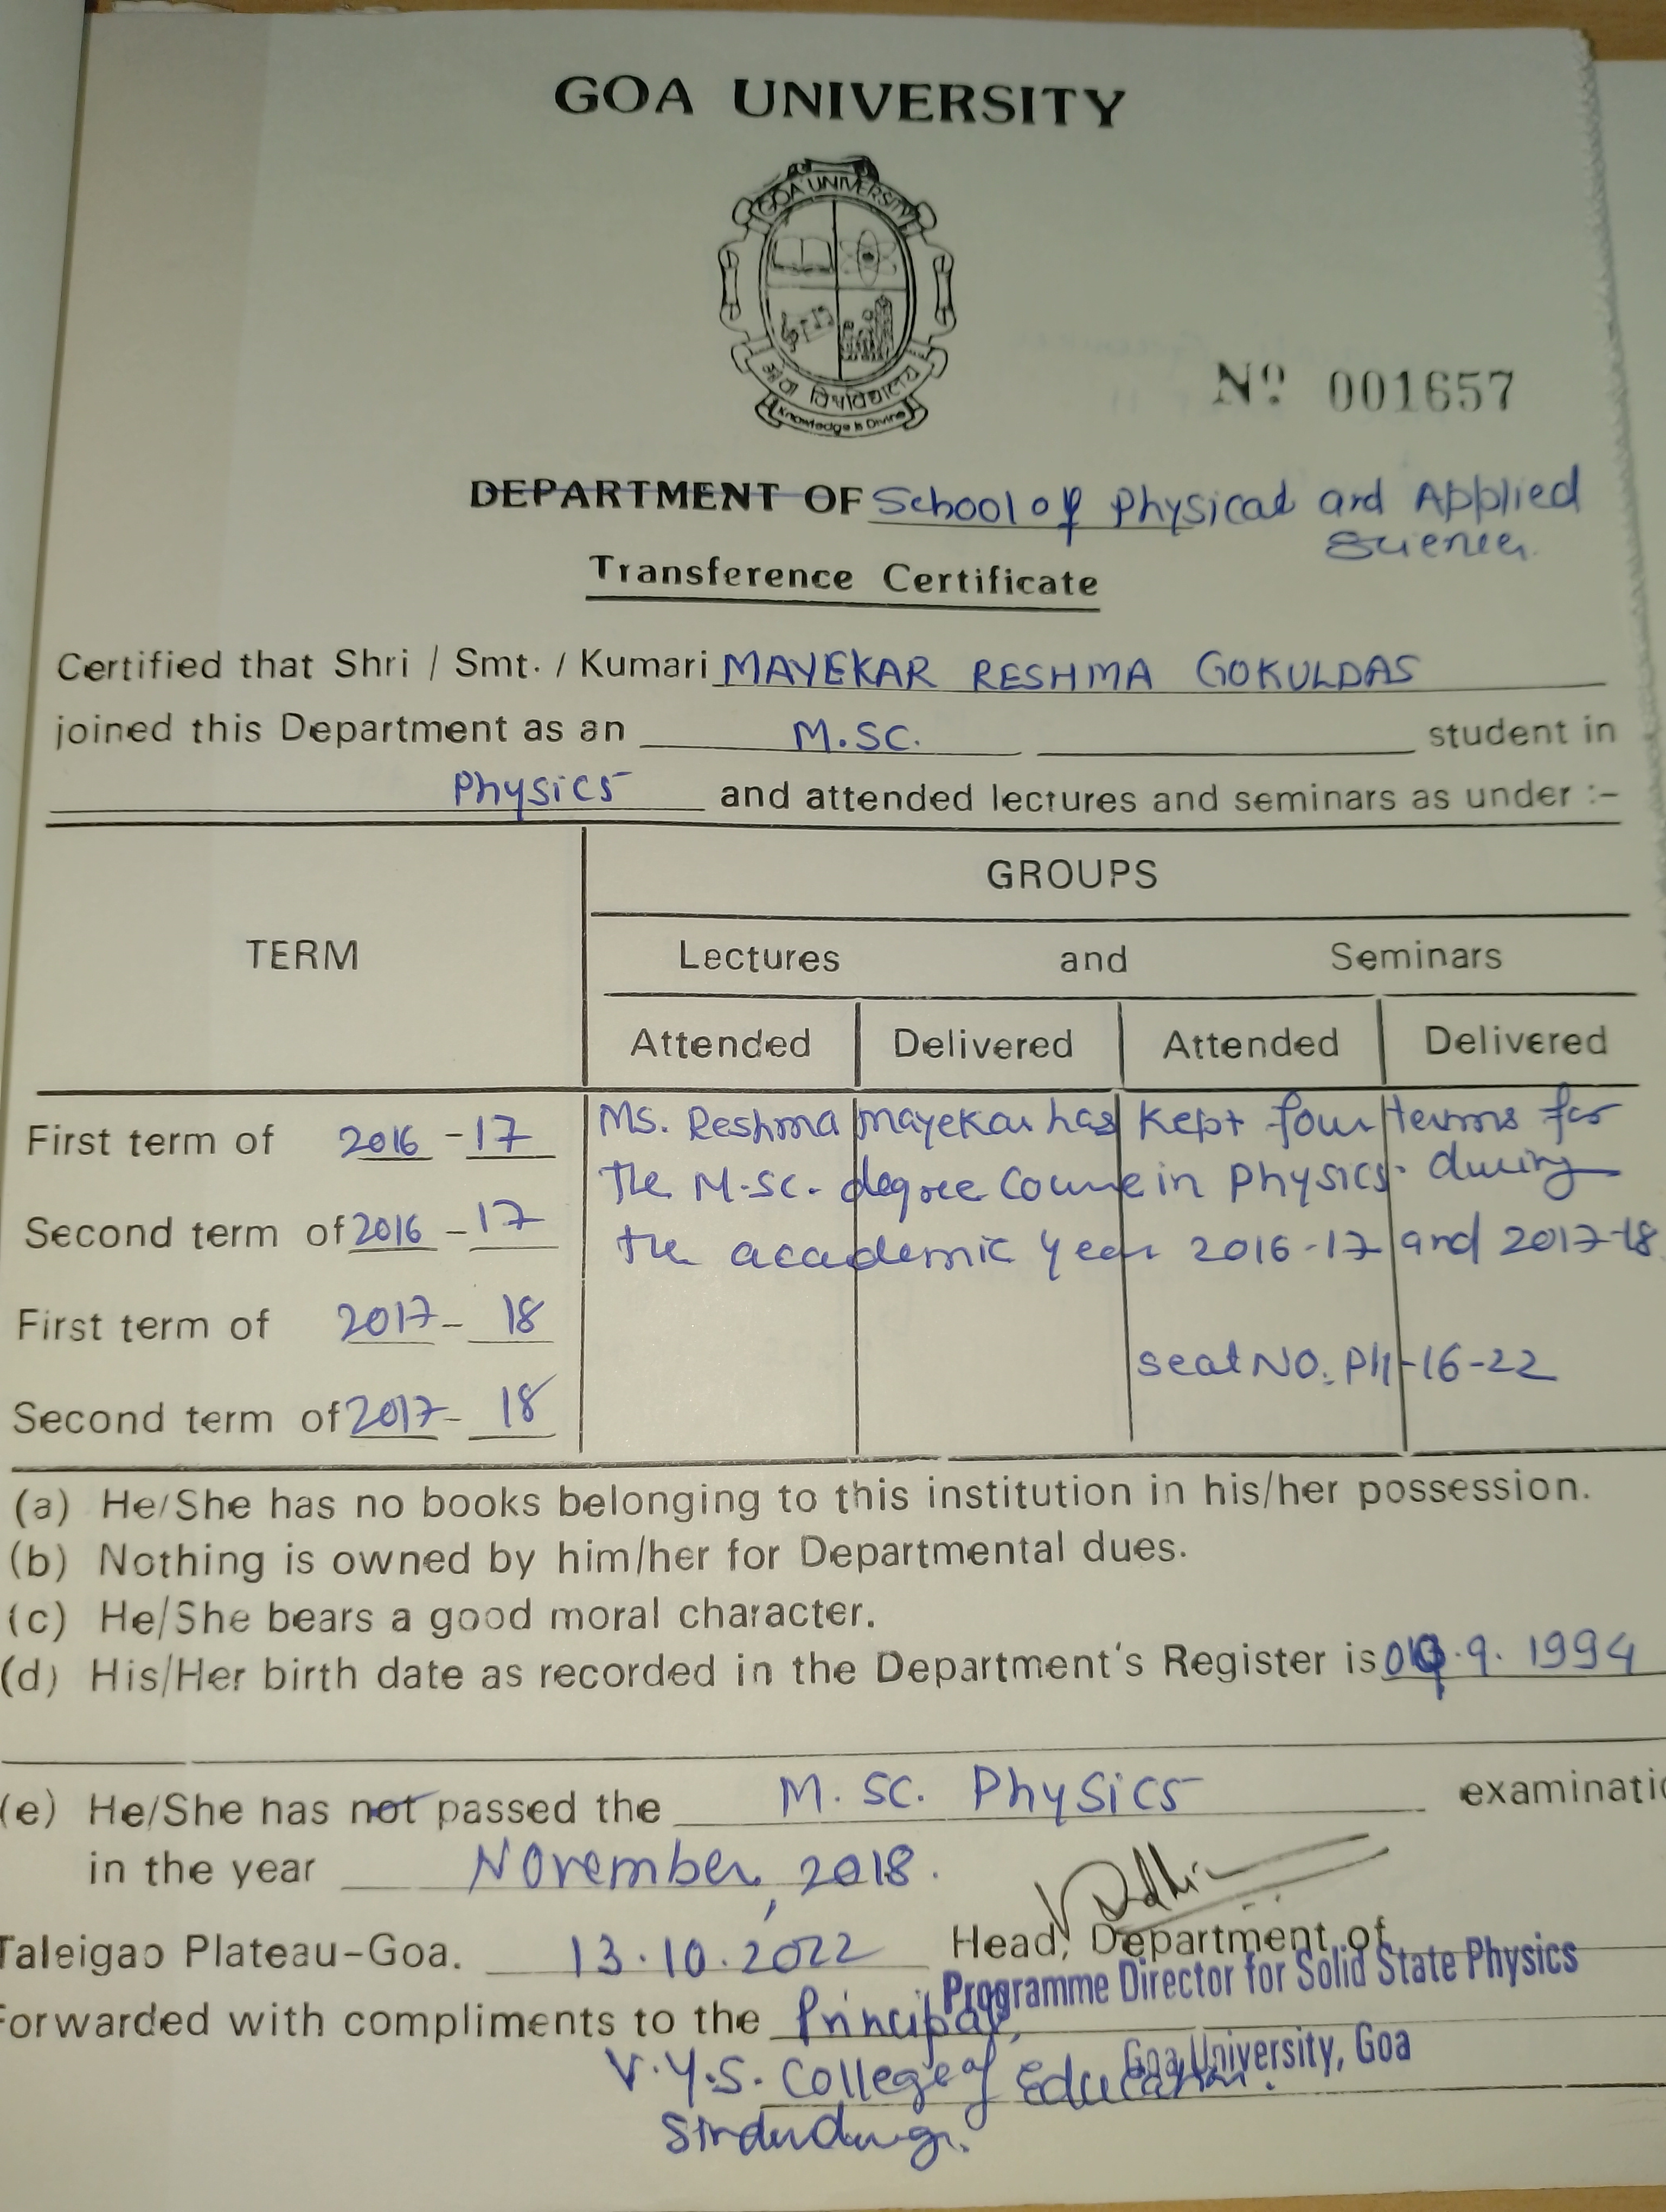 GOA UNIVERSITY
GOA UNIVERSITY
गोवा विश्वविद्यालय
Knowledge is Divine
Nº 001657
DEPARTMENT OF School of Physical and Applied
Sciences.
Transference Certificate
Certified that Shri / Smt. / Kumari MAYEKAR RESHMA GOKULDAS
joined this Department as an M.SC. student in
Physics and attended lectures and seminars as under :-
GROUPS
TERM
Lectures and Seminars
Attended Delivered Attended Delivered
First term of 2016 - 17
Ms. Reshma Mayekar has kept four terms for
the M.SC. degree Course in Physics. during
Second term of 2016 - 17
the academic year 2016-17 and 2017-18
First term of 2017 - 18
seat NO. PH-16-22
Second term of 2017 - 18
(a) He/She has no books belonging to this institution in his/her possession.
(b) Nothing is owned by him/her for Departmental dues.
(c) He/She bears a good moral character.
(d) His/Her birth date as recorded in the Department's Register is .9.1994
(e) He/She has not passed the M.SC. Physics examinatio
in the year November, 2018.
Taleigao Plateau-Goa. 13.10.2022 Head, Department of
Programme Director for Solid State Physics
Forwarded with compliments to the Principal,
Goa University, Goa
V.Y.S. College of Education.